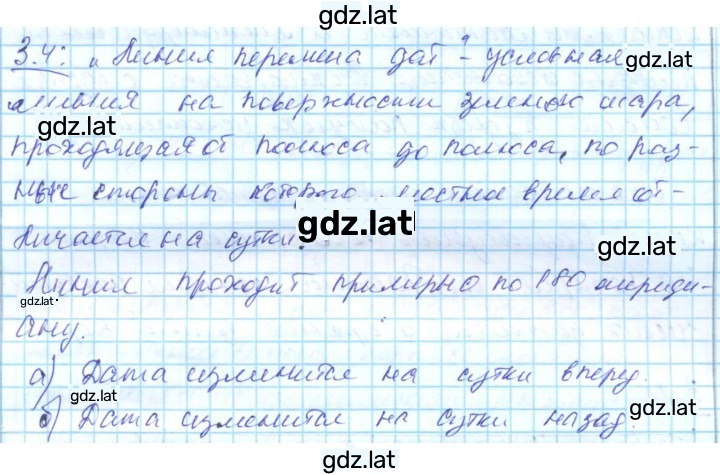 gdz.lat
3.4: "Линия перемена дат" - условная gdz.lat
линия на поверхности земного шара,
gdz.lat
проходящая от полюса до полюса, по раз-
ные стороны которого местное время от-
gdz.lat
личается на сутки. gdz.lat
Линия проходит примерно по 180 мериди-
gdz.lat
ану. gdz.lat
а) Дата изменится на сутки вперед.
gdz.lat
б) Дата изменится на сутки назад. gdz.lat
gdz.lat